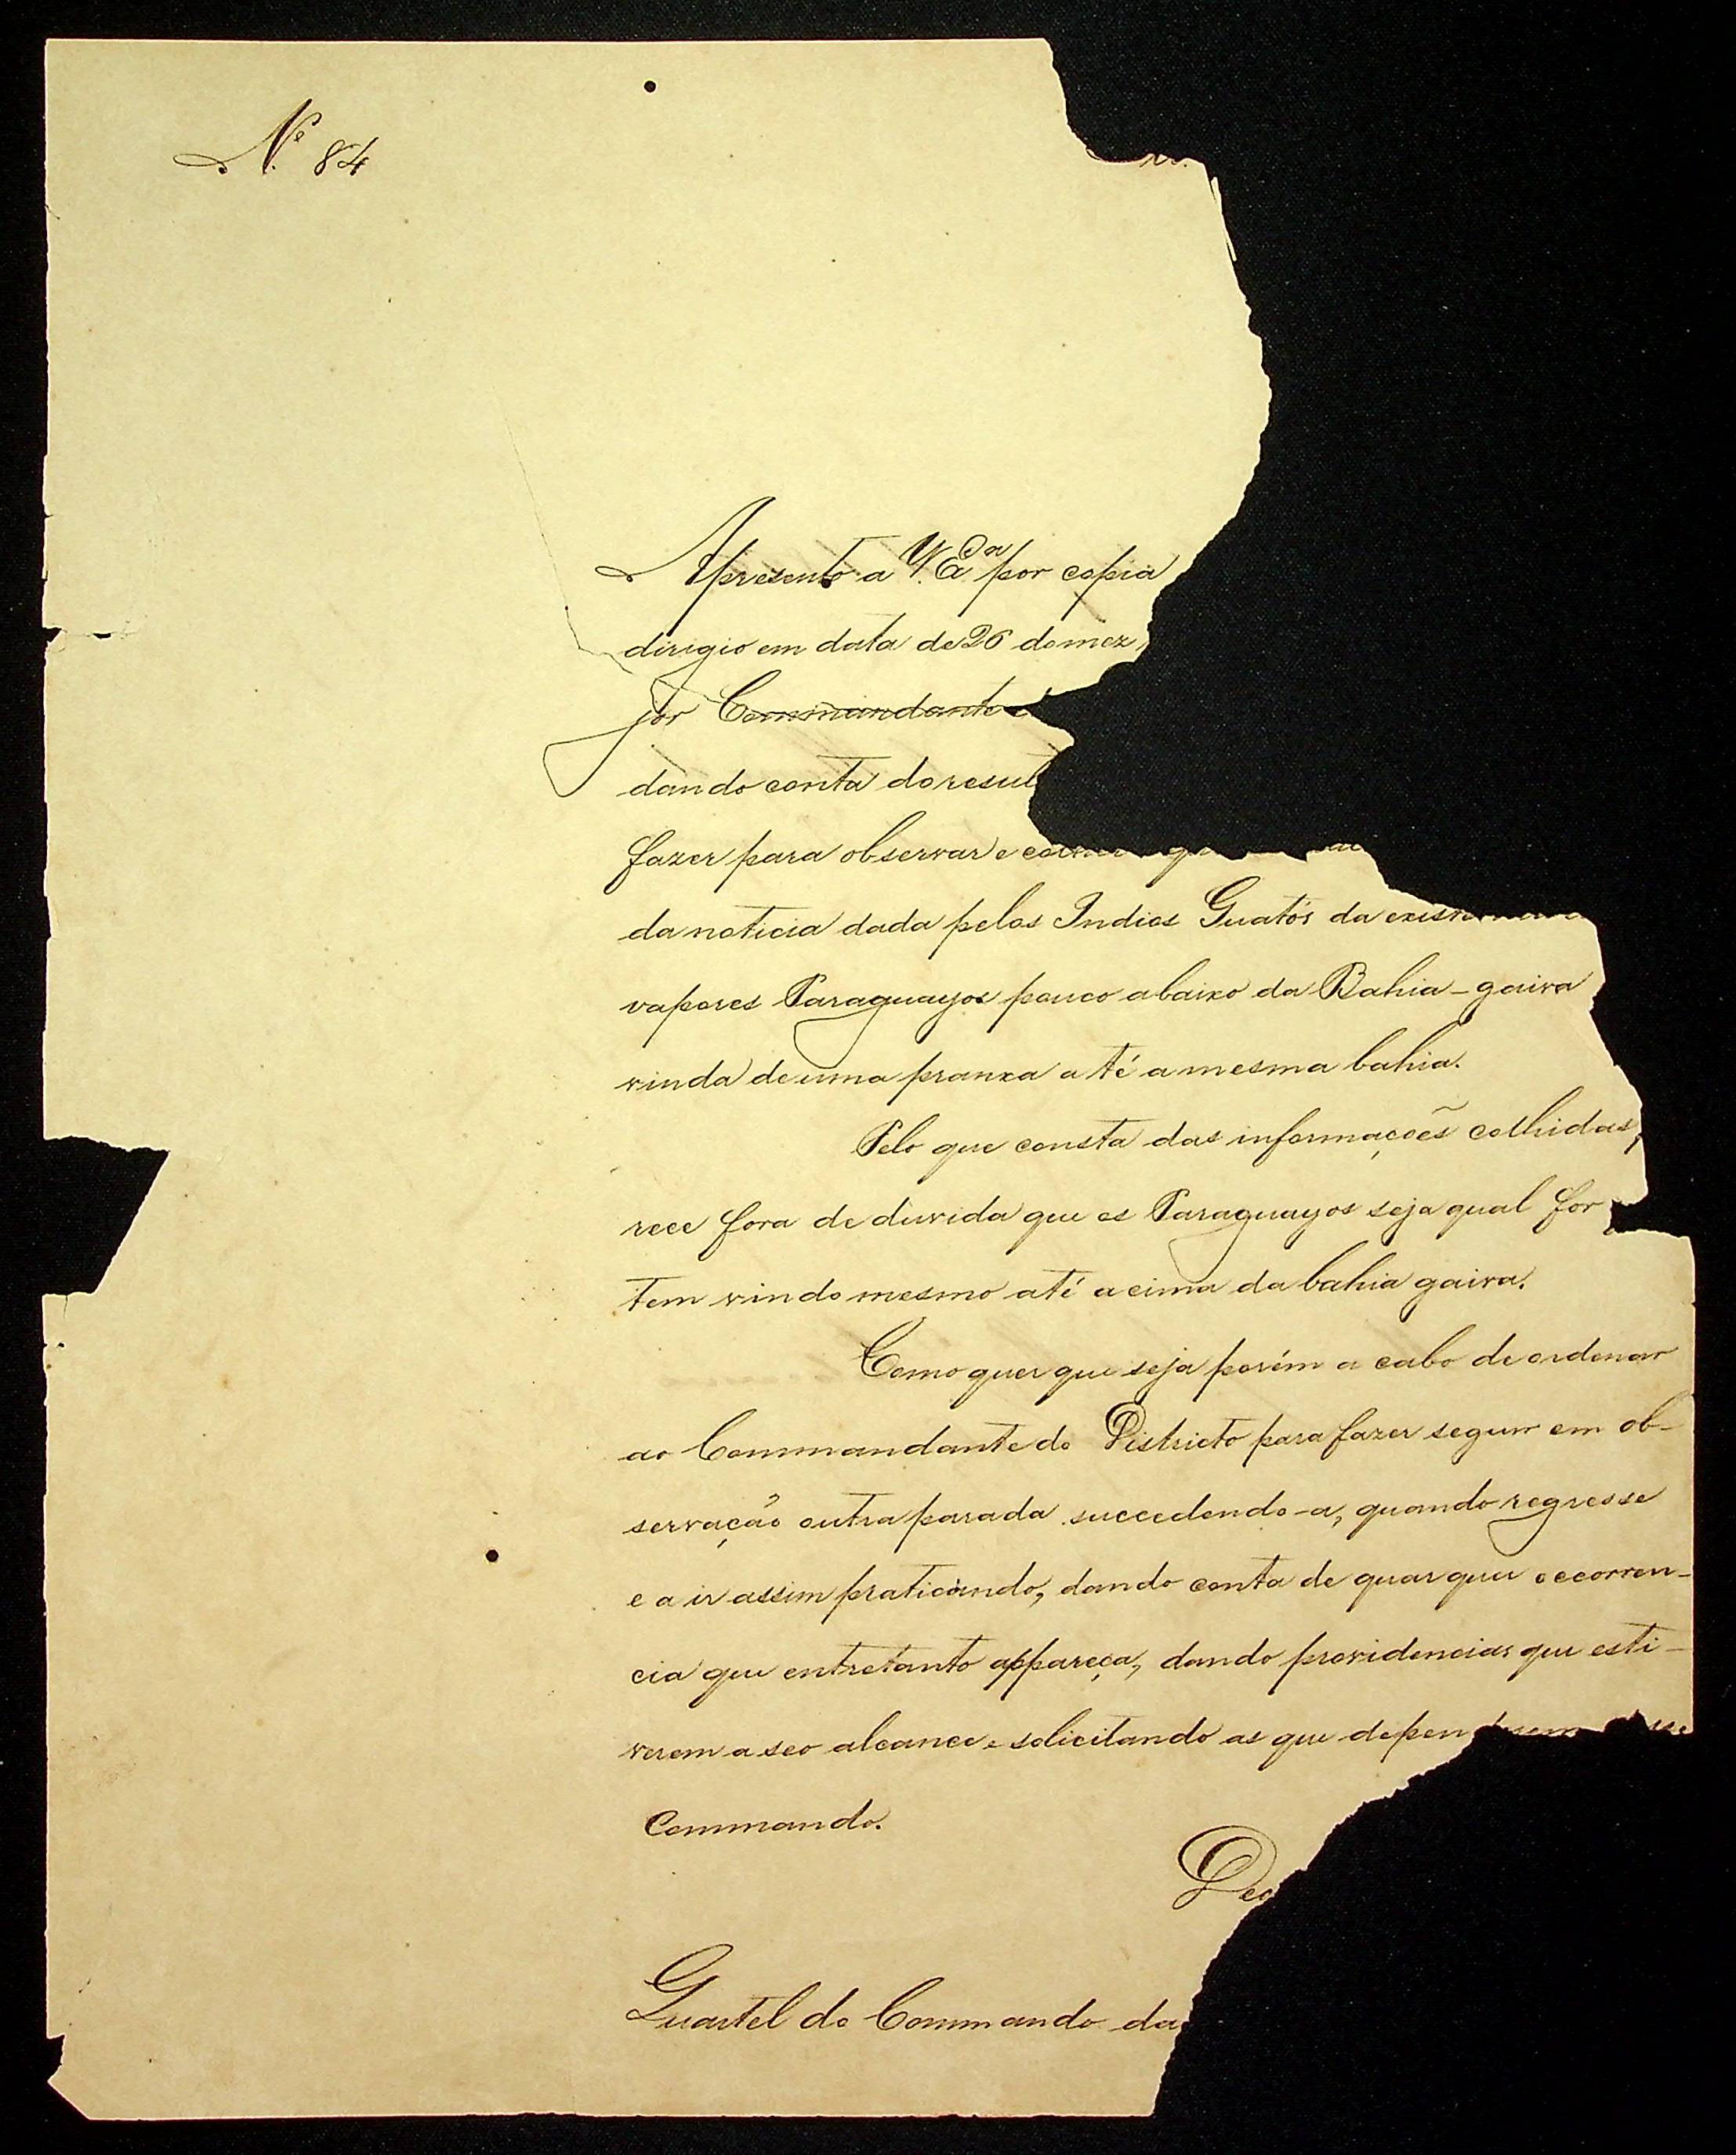 Nº 84
Apresento a V. Exª por copia
dirigio em data de 26 do mez
jor Commandante
dando conta do resul
fazer para observar e
da noticia dada pelos Indios Guatós da
vapores Paraguayos pouco abaixo da Bahia-gaiva
vinda de uma pranxa até a mesma bahia.
Pelo que consta das informações colhidas,
rece fora de duvida que os Paraguayos seja qual for
tem vindo mesmo até acima da bahia gaiva.
Como quer que seja porém acabo de ordenar
ao Commandante do Districto para fazer seguir em ob-
servação outra parada succedendo-a, quando regresse
e a ir assim praticando, dando conta de quarquer occorren-
cia que entretanto appareça, dando providencias que esti-
verem a seo alcance e solicitando as que
Commando.
Deo
Quartel do Commando da